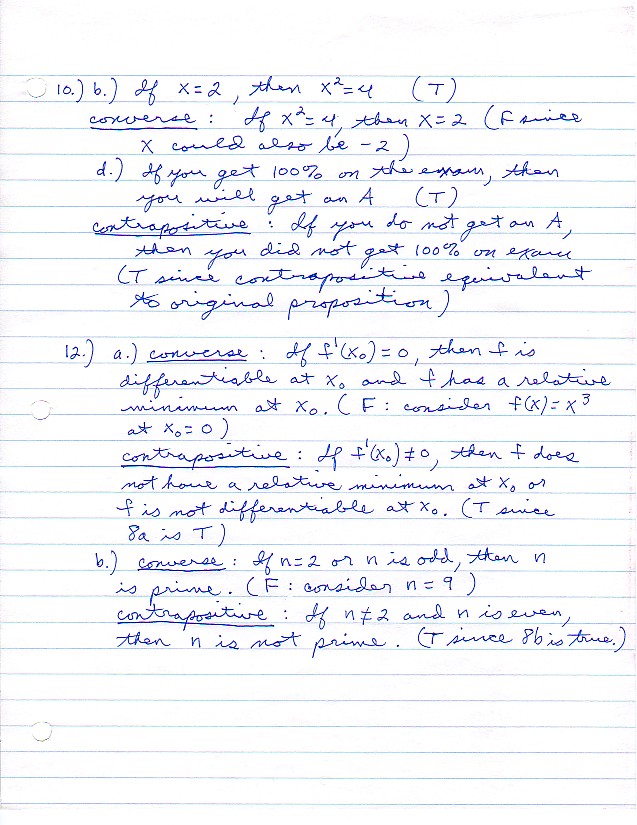 10.) b.) If x=2, then x²=4 (T)
converse : If x²=4, then x=2 (F since
x could also be -2)
d.) If you get 100% on the exam, then
you will get an A (T)
contrapositive : If you do not get an A,
then you did not get 100% on exam
(T since contrapositive equivalent
to original proposition)
12.) a.) converse : If f'(x₀)=0, then f is
differentiable at x₀ and f has a relative
minimum at x₀. (F: consider f(x)=x³
at x₀=0)
contrapositive : If f'(x₀)≠0, then f does
not have a relative minimum at x₀ or
f is not differentiable at x₀. (T since
8a is T)
b.) converse : If n=2 or n is odd, then n
is prime. (F: consider n=9)
contrapositive : If n≠2 and n is even,
then n is not prime. (T since 8b is true.)